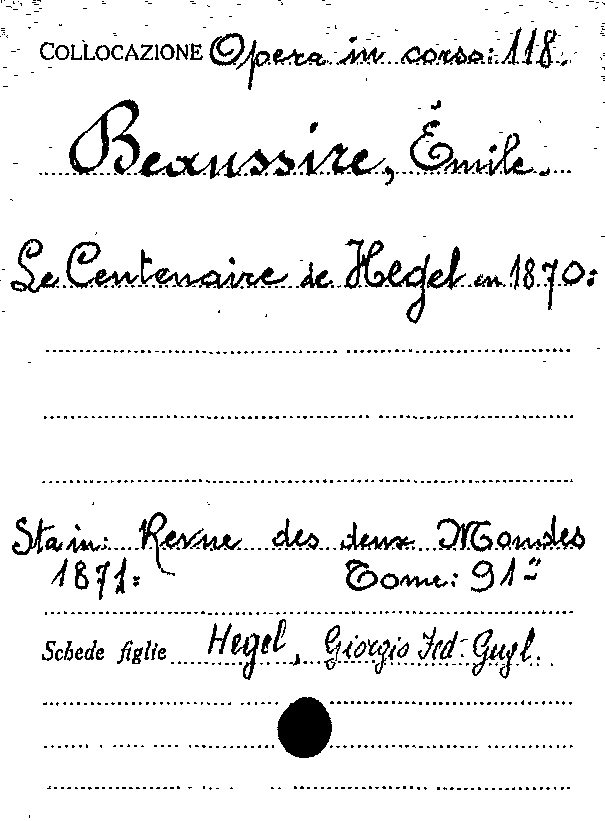 COLLOCAZIONE Opera in corso: 118.
Beaussire, Émile.
Le Centenaire de Hegel en 1870:
Sta in: Revue des deux Mondes
1871: Tome: 91º
Schede figlie Hegel, Giorgio Fed. Gugl.